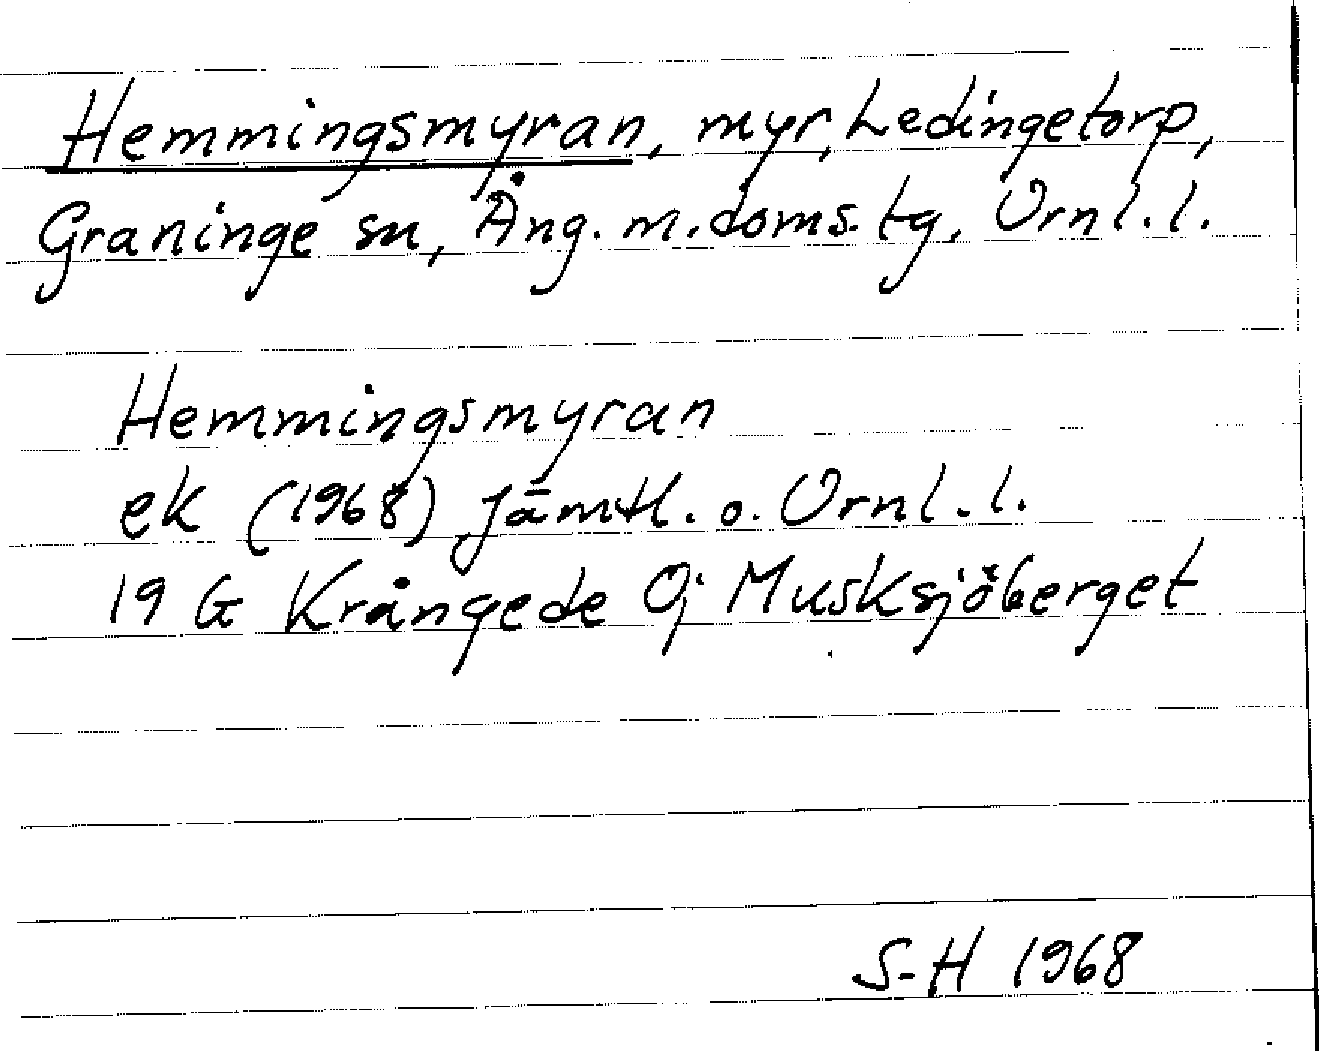 Hemmingsmyran, myr, Ledingetorp,
Graninge sn, Ång. m. doms. tg, Vrnl. l.
Hemmingsmyran
ek (1968) Jämtl. o. Vrnl. l.
19 G Krångede Oj Musksjöberget
S-H 1968